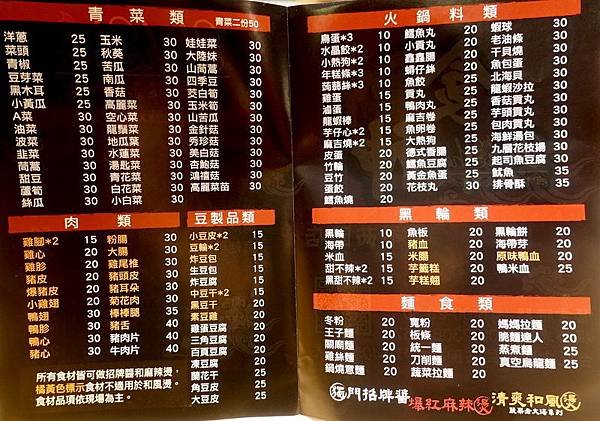 青菜類 青菜二份50
洋蔥 25
菜頭 25
青椒 25
豆芽菜 25
黑木耳 25
小黃瓜 25
A菜 25
油菜 25
波菜 25
韭菜 25
茼蒿 25
甜豆 25
蘆筍 30
絲瓜 30
玉米 30
秋葵 30
苦瓜 30
南瓜 30
香菇 30
高麗菜 30
空心菜 30
龍鬚菜 30
地瓜葉 30
水蓮菜 30
湯匙菜 30
青花菜 30
白花菜 30
小白菜 30
娃娃菜 30
大陸妹 30
山茼蒿 30
四季豆 30
茭白筍 30
玉米筍 30
山苦瓜 30
金針菇 30
秀珍菇 30
美白菇 30
杏鮑菇 30
鴻禧菇 30
高麗菜苗 30
肉類
雞腳*2 15
雞心 20
雞胗 20
豬皮 20
爆豬皮 20
小雞翅 20
鴨翅 30
鴨胗 30
鴨心 30
豬心 30
粉腸 30
大腸 30
雞尾椎 30
豬頭皮 30
豬耳朵 30
菊花肉 30
棒棒腿 35
豬舌 40
豬肉片 40
牛肉片 40
豆製品類
小豆皮*2 15
豆輪*2 15
炸豆包 15
生豆包 15
炸豆腐 15
中豆干*2 15
黑豆干 15
素豆雞 20
雞蛋豆腐 20
三角豆腐 20
百頁豆腐 20
凍豆腐 20
蘭花干 25
角豆皮 25
大豆皮 25
所有食材皆可做招牌醬和麻辣燙,
橘黃色標示食材不適用於和風燙。
食材品項依現場為主。
火鍋料類
鳥蛋*3 10
水晶餃*2 10
小熱狗*2 10
年糕條*3 10
蒟蒻絲*3 10
雞蛋 15
滷蛋 15
龍蝦棒 15
芋仔心*2 15
麻吉燒*2 15
皮蛋 20
竹輪 20
豆竹 20
蛋餃 20
鱈魚燒 20
鱈魚丸 20
小貢丸 20
鑫鑫腸 20
蟳仔丝 20
魚餃 20
貢丸 20
鴨肉丸 20
麻吉卷 20
魚卵卷 20
大熱狗 20
德式香腸 20
鱈魚豆腐 20
黃金魚蛋 20
花枝丸 30
蝦球 30
老油條 30
干貝燒 30
魚包蛋 30
北海貝 30
龍蝦沙拉 30
香菇貢丸 30
芋頭貢丸 30
包肉貢丸 30
海鮮湯包 30
九層花枝揚 30
起司魚豆腐 30
魷魚 35
排骨酥 35
黑輪類
黑輪 10
海帶 10
米血 10
甜不辣*2 10
黑甜不辣*2 10
魚板 20
豬血 20
米腸 20
芋籤糕 20
芋糕翅 20
黑輪餅 20
海帶芽 20
原味鴨血 20
鴨米血 25
麵食類
冬粉 20
王子麵 20
關廟麵 20
雞絲麵 20
鍋燒意麵 20
寬粉 20
板條 20
統一麵 20
刀削麵 20
蔬菜拉麵 20
媽媽拉麵 20
脆麵達人 20
蒸煮麵 25
真空烏龍麵 25
門招牌醬
爆紅麻辣燙
清爽和風燙